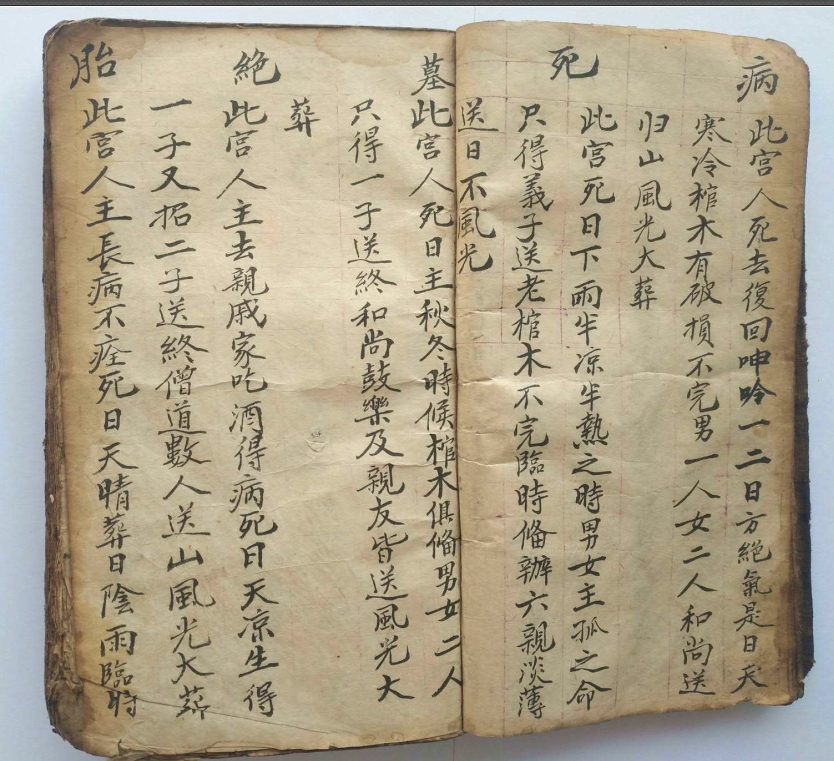 病 此宫人死去復回呻吟一二日方絶氣是日天
寒冷棺木有破損不完男一人女二人和尚送
归山風光大葬
死
此宫死日下雨半凉半熱之時男女主孤之命
只得義子送老棺木不完臨時俻辦六親淡薄
送日不風光
墓此宫人死日主秋冬時候棺木俱俻男女二人
只得一子送終和尚鼓樂及親友皆送風光大
葬
絕此宫人主去親戚家吃酒得病死日天凉生得
一子又招二子送終僧道數人送山風光大葬
胎此宫人主長病不痊死日天晴葬日陰雨臨時